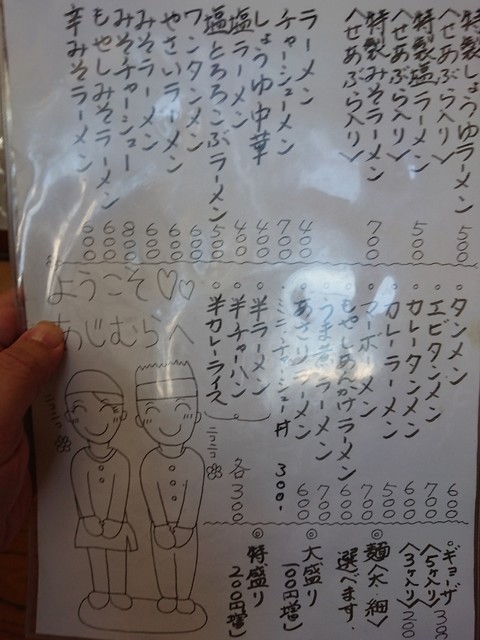 特製しょうゆラーメン
〈せあぶら入り〉 500
特製塩ラーメン
〈せあぶら入り〉 500
特製みそラーメン
〈せあぶら入り〉 700
ラーメン 400
チャーシューメン 700
しょうゆ中華 400
塩ラーメン 400
塩とろろこぶラーメン 500
ワンタンメン 600
やさいラーメン 600
みそラーメン 600
みそチャーシュー 800
もやしみそラーメン 600
辛みそラーメン 600
タンメン 600
エビタンメン 700
カレータンメン 600
カレーラーメン 500
マーボーメン 700
もやしあんかけラーメン 600
うま煮ラーメン 700
あさりラーメン 600
ミニチャーシュー丼 300.
半ラーメン
半チャーハン
半カレーライス
各300
ようこそ♡♡
あじむらへ
ニコニコ
ニコニコ
ギョーザ
〈5ヶ入り〉 300
〈3ヶ入り〉 200
◎麺〈太・細〉
選べます.
◎大盛り
100円増〉
◎特盛り
200円増〉